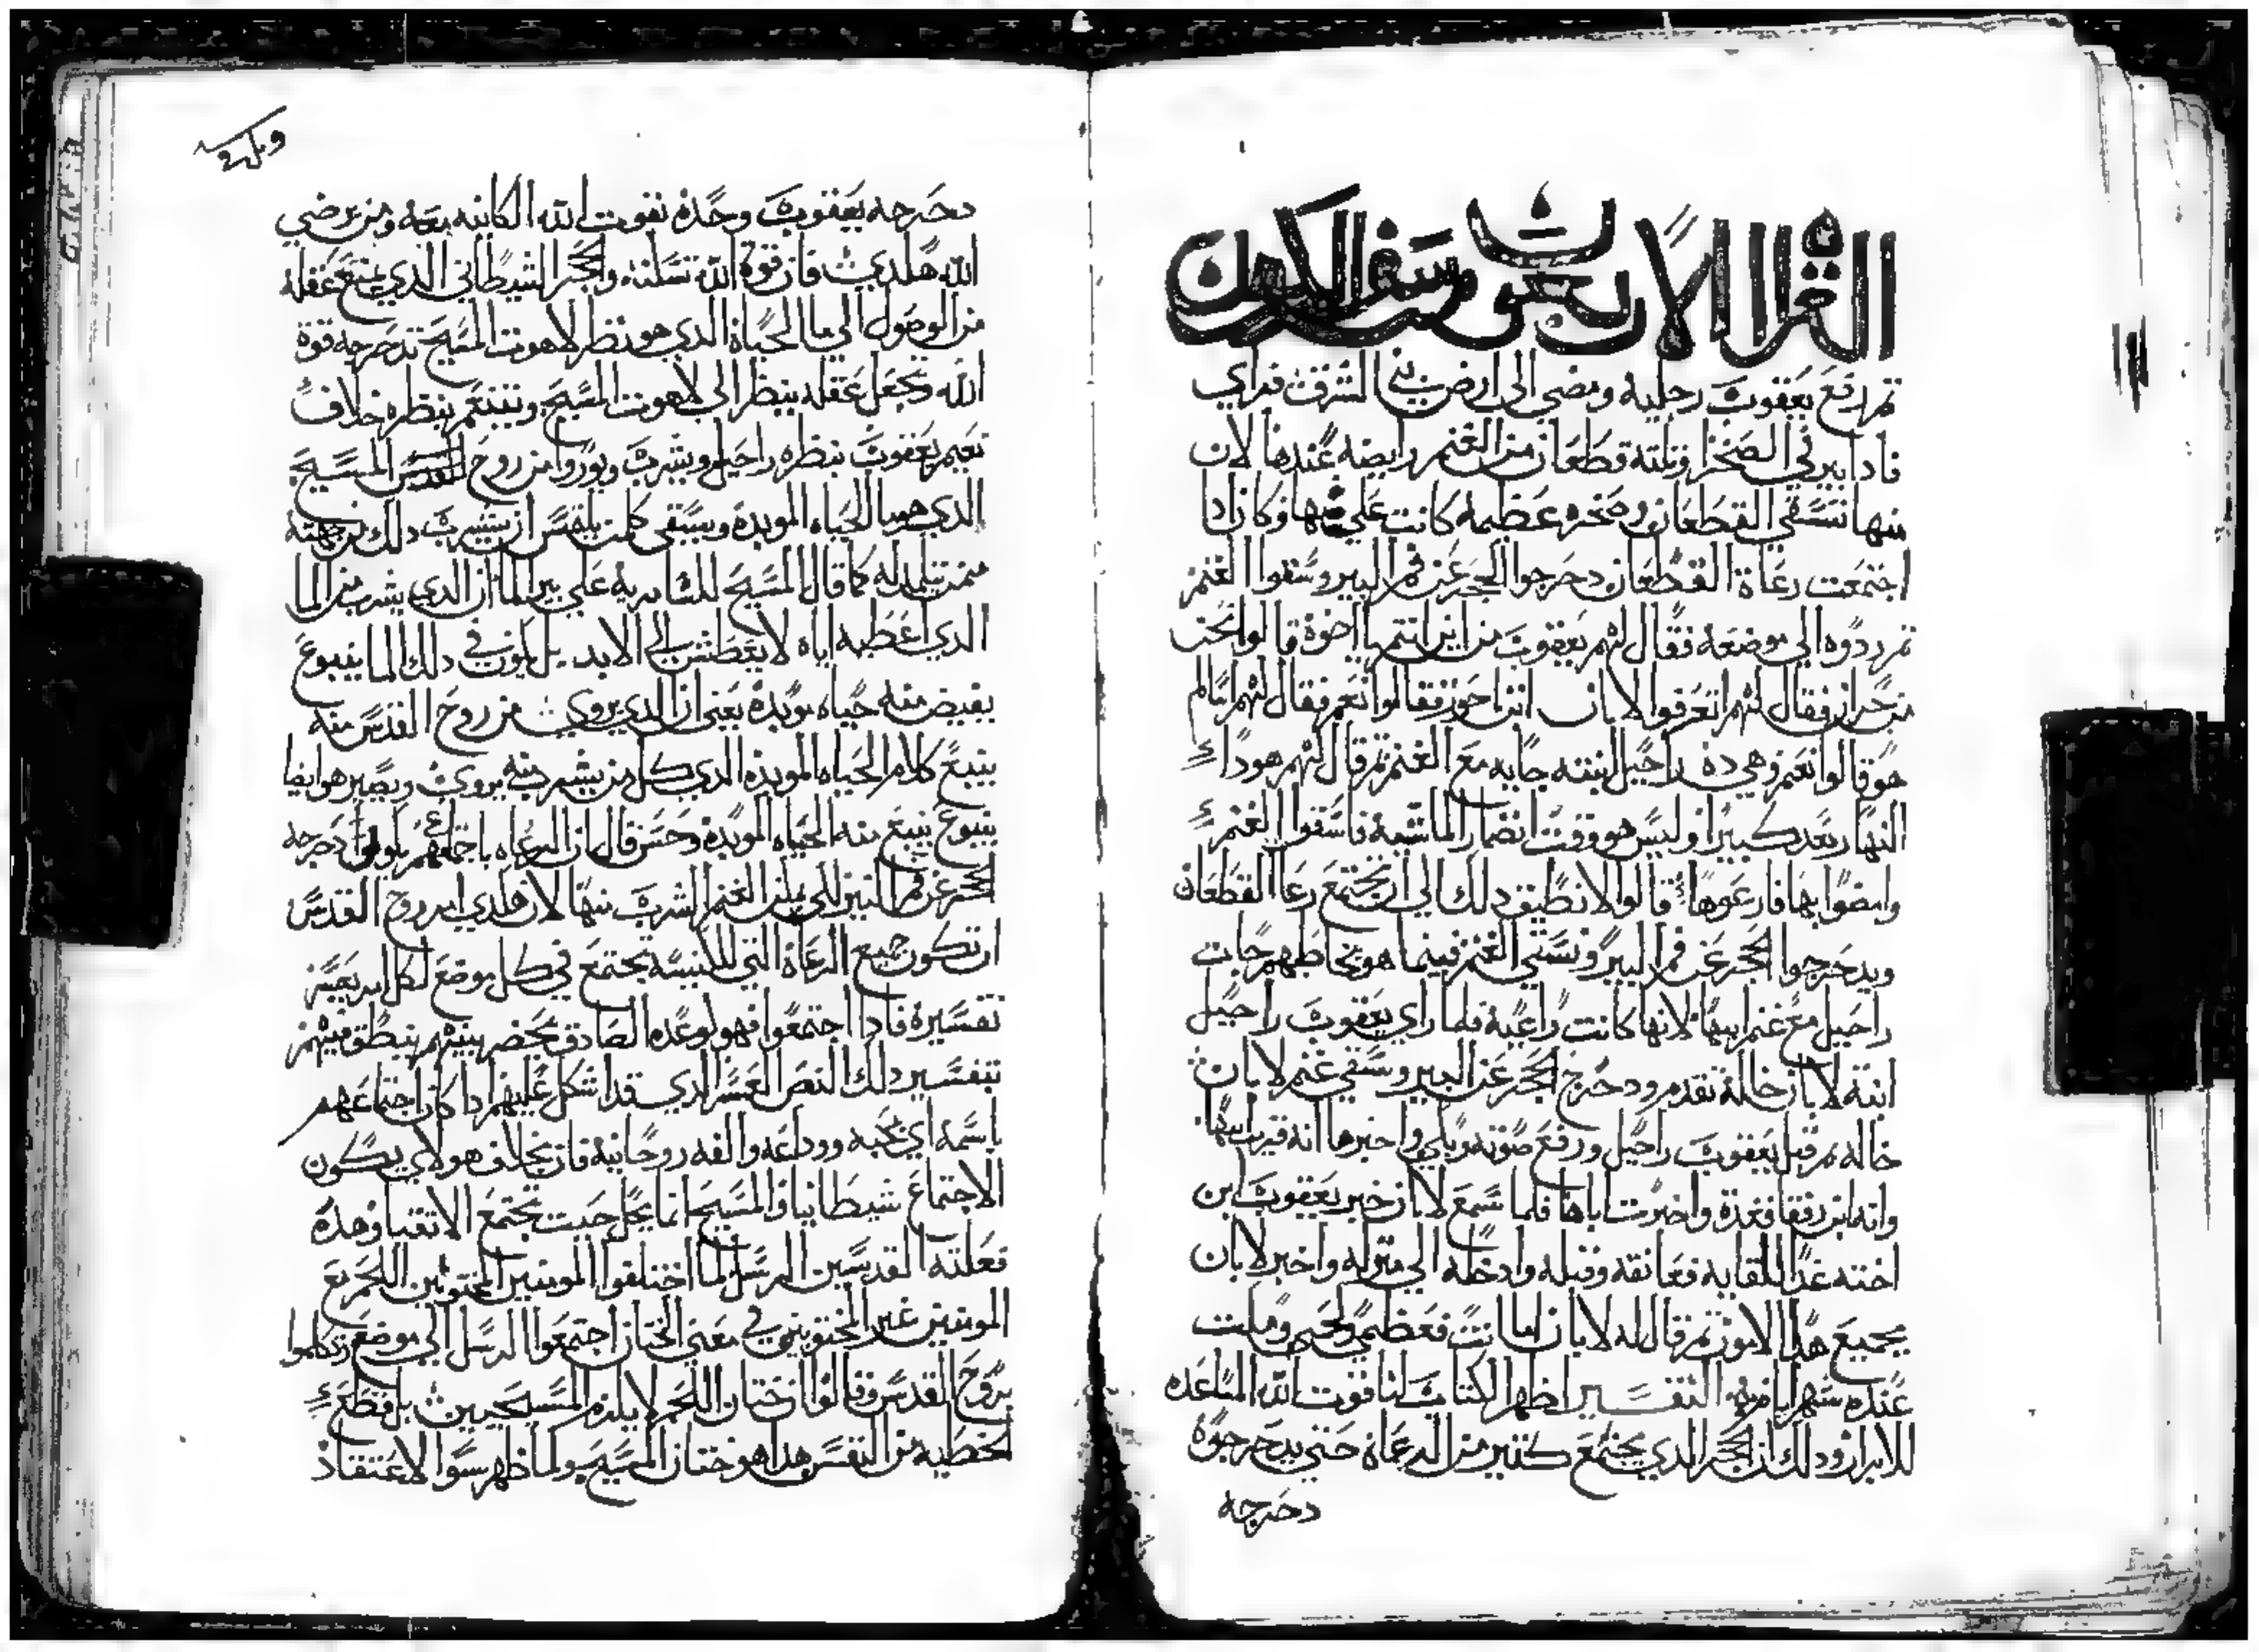 القرا الاربعون سفر التكوين
تم رفع يعقوب رجليه ومضي الى ارض بني الشرق فراي
فادا بير في الصخرا وتلته قطعان من الغنم رابضه عندها لان
منها تسقي القطعان وصخره عظيمه كانت على فمها وكان ادا
اجتمعت رعاة القطعان دحرجوا الحجر عن فم البير وسقوا الغنم
تم ردوه الى موضعه فقال لهم يعقوب من اين انتم يا اخوة قالوا نحن
من حران فقال لهم اتعرفوا لابان ابن ناحور فقالوا نعم فقال لهم اسالم
هو قالوا نعم وهي ده راحيل ابنته جايه مع الغنم تم قال لهم هودا
النهار بعد كبيرا وليس هو وقت انضمار الماشيه فاسقوا الغنم
وامضوا بها فارعوها قالوا لا نطيق دلك الى ان تجتمع رعا القطعان
ويدحرجوا الحجر عن فم البير ونسقي الغنم فبينما هو يخاطبهم جات
راحيل مع غنم ابيها لانها كانت راعيه فلما راي يعقوب راحيل
ابنة لابان خاله تقدم ودحرج الحجر عن البير وسقي غنم لابان
خاله تم قبل يعقوب راحيل ورفع صوته وبكي واخبرها انه قريب ابيها
وانه ابن رفقا فغدة واخبرت اباها فلما سمع لابان خبر يعقوب ابن
اخته غدا للقايه فعانقه وقبله وادخله الى منزله واخبر لابان
بجميع هدا الامور تم قال له لابان اما انت فعظمي ولحمي ومكت
عنده شهر ايام التفسير اظهر الكتاب لنا قوت الله المساعده
للابرار ودلك ان الحجر الدي يجتمع كتير من الرعاة حتي يدحرجوه
دحرجه
دحرجه يعقوب وحده بقوت الله الكاينه معه ومن يرضي
الله هكدي فان قوة الله تسلنه والحجر الشيطاني الدي يمنع عقله
من الوصول الى ما الحياة الدي هو نظر لاهوت المسيح تدحرجه قوة
الله وتجعل عقله ينظر الى لاهوت المسيح ويتنعم بنظره خلاف
نعيم يعقوب بنظره راحيل ويشرب ويوروا من روح القدس المسيح
الدي هو ما الحياه الموبده ويسقي كلمن يلتمس ان يشرب دلك من جهته
ممن يتلمد له كما قال المسيح للسامريه علي بير الما ان الدي يشرب من الما
الدي اعطيه اياه لا يعطش الى الابد بل يكون في دلك الما ينبوع
يفيض منه حياه موبده يعني ان الدي يروي من روح القدس منه
ينبع كلام الحياه الموبده الدي كل من يشرب منه يروي ويصير هو ايضا
ينبوع ينبع منه الحياه الموبده وحسن قال ان الرعاه باجماعهم دحرجه
الحجر عن فم البير لكي يمكن الغنم الشرب منها لان هكدي امر روح القدس
ان تكون جميع الرعاة التي للكنيسه تجتمع في كل موضع لكل امر يعسر
تفسيره فادا اجتمعوا فهو لوعده الصادق يحضر بينهم ينطق فيهم
بتفسير دلك النص العسر الدي قد اشكل عليهم ادا كان اجتماعهم
باسمه اي بمحبه ووداعه والفه روحانيه فان بخلاف هولاي يكون
الاجتماع شيطانيا والمسيح انما يحل حيت تجتمع الاتقيا وهده
فعلته القديسين الرسل لما اختلفوا المومنين المختونين اللحم مع
المومنين غير المختونين في معني الختان اجتمعوا الرسل الى موضع وتكلموا
بروح القدس وقالوا ان ختان اللحم لا يلزم المسيحيين بل قطع
الخطيه من النفس هدا هو ختان المسيح ولما ظهر سوا الاعتقاد